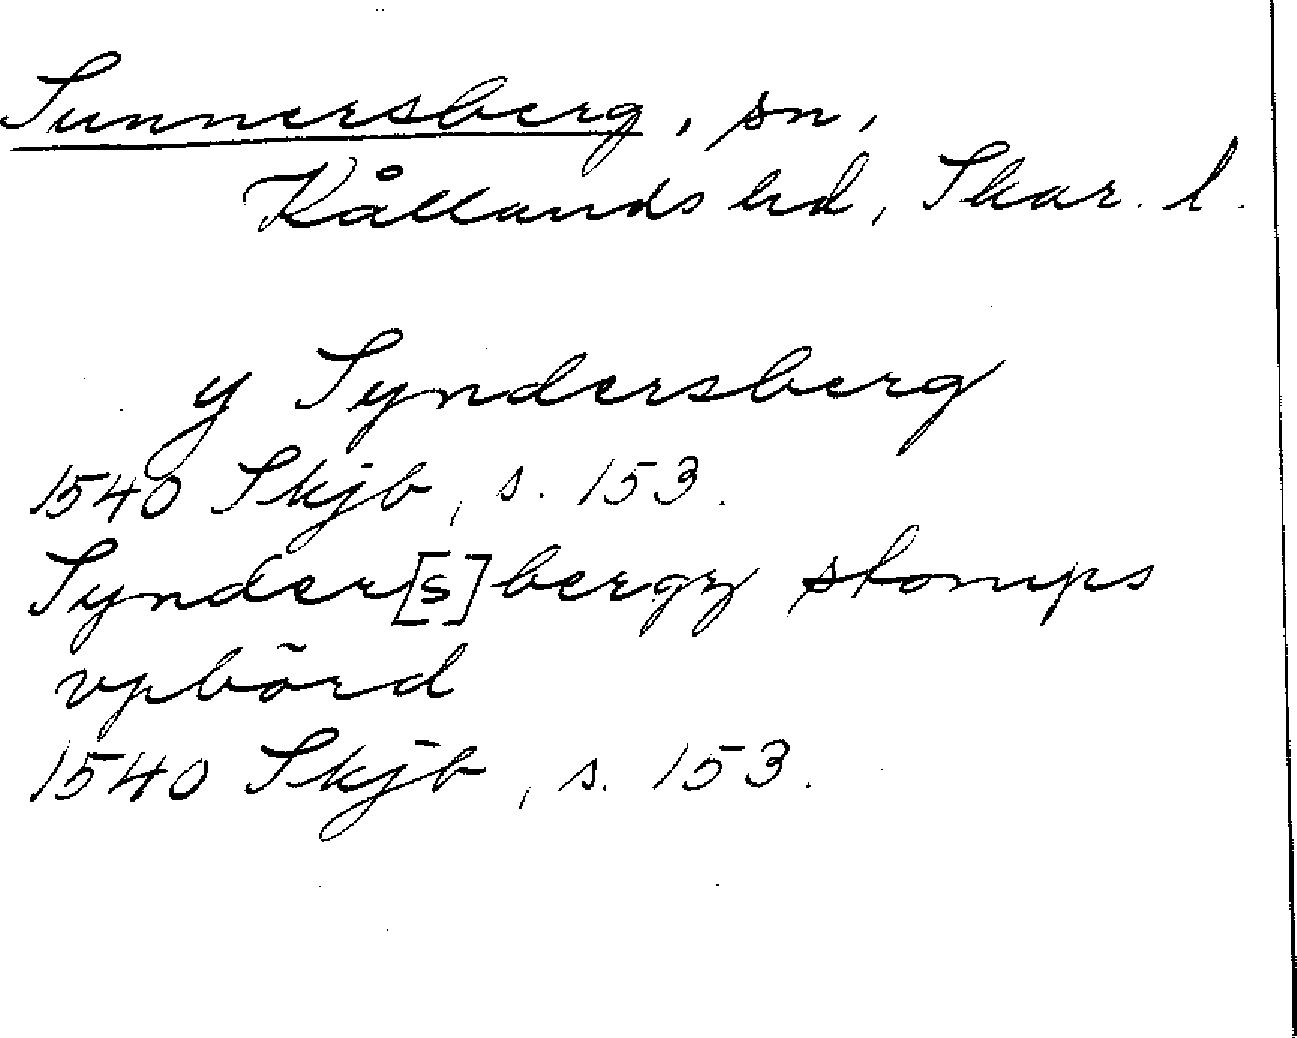 Sunnersberg, sn,
Kållands hd, Skar. l.
y Syndersberg
1540 Skjb, s. 153.
Synder[s]bergz stomps
vpbörd
1540 Skjb, s. 153.